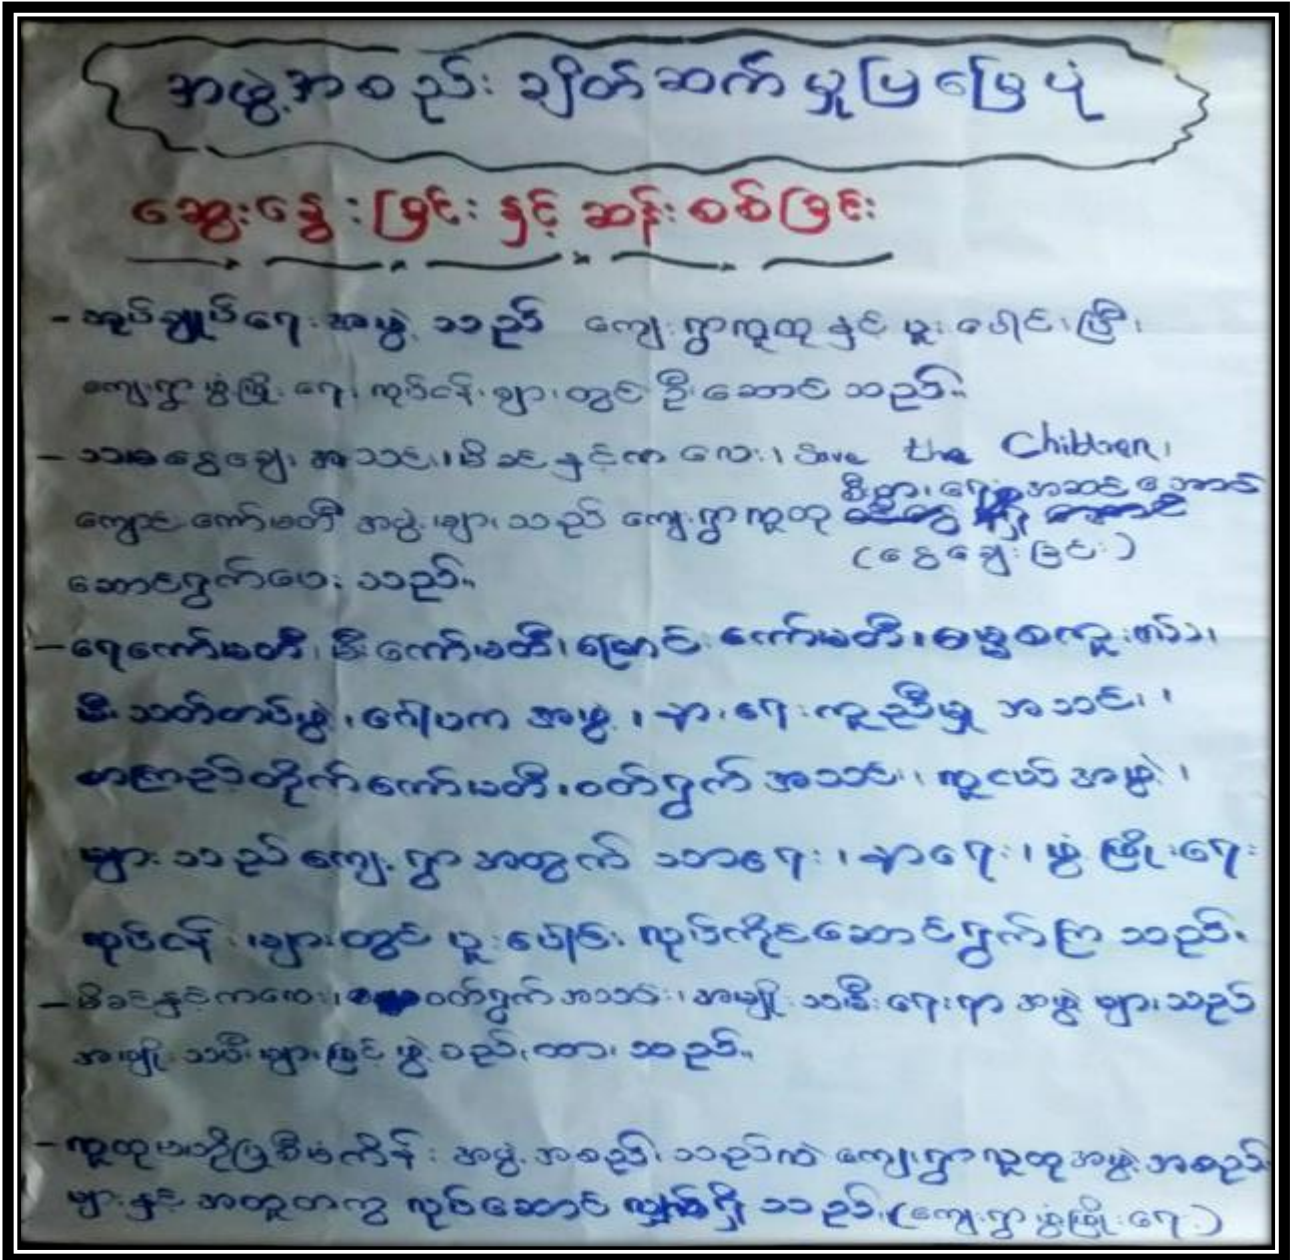 အဖွဲ့အစည်း ချိတ်ဆက်မှုပြမြေပုံ
ဆွေးနွေးခြင်းနှင့် ဆန်းစစ်ခြင်း
- အုပ်ချုပ်ရေးအဖွဲ့သည် ကျေးရွာလူထုနှင့် ပူးပေါင်းပြီး
ကျေးရွာဖွံ့ဖြိုးရေးလုပ်ငန်းများတွင် ဦးဆောင်သည်။
- ငွေချေးအသင်း၊ မိခင်နှင့်ကလေး၊ Save the Children၊
စီးပွားရေး အဆင်အောင်
ကျောင်းကော်မတီ အဖွဲ့များသည် ကျေးရွာလူထု
(ငွေချေးခြင်း)
ဆောင်ရွက်ပေးသည်။
- ရေကော်မတီ၊ မီးကော်မတီ၊ မြောင်းကော်မတီ၊ ဓမ္မစကူးလ်၊
မီးသတ်တပ်ဖွဲ့၊ ဂေါပကအဖွဲ့၊ နာရေးကူညီမှုအသင်း၊
စာကြည့်တိုက်ကော်မတီ၊ ဝတ်ရွတ်အသင်း၊ လူငယ်အဖွဲ့၊
များသည် ကျေးရွာအတွက် သာရေး၊ နာရေး၊ ဖွံ့ဖြိုးရေး
လုပ်ငန်းများတွင် ပူးပေါင်းလုပ်ကိုင်ဆောင်ရွက်ကြသည်။
- မိခင်နှင့်ကလေး၊ ဝတ်ရွတ်အသင်း၊ အမျိုးသမီးရေးရာအဖွဲ့များသည်
အမျိုးသမီးများဖြင့် ဖွဲ့စည်းထားသည်။
- လူထုဗဟိုပြုစီမံကိန်းအဖွဲ့အစည်းသည်လဲ ကျေးရွာလူထုအဖွဲ့အစည်း
များနှင့်အတူတကွ လုပ်ဆောင်လျက်ရှိသည်။ (ကျေးရွာဖွံ့ဖြိုးရေး)